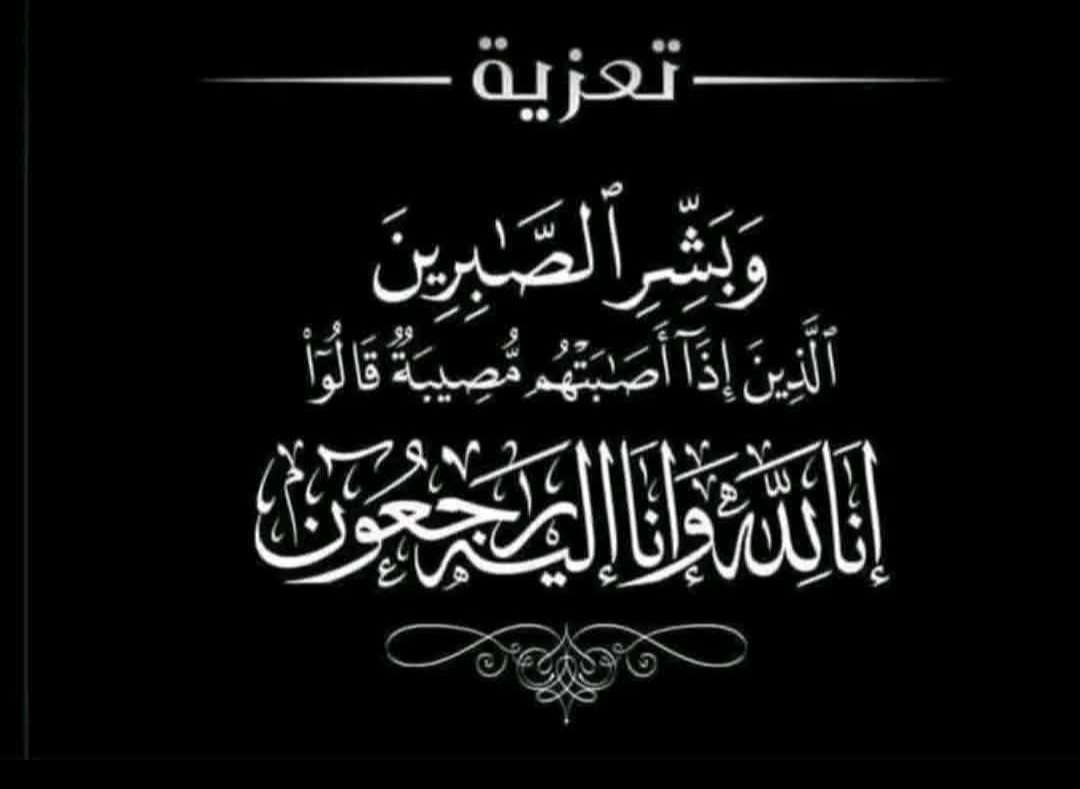 تعزية
وَبَشِّرِ ٱلصَّٰبِرِينَ
ٱلَّذِينَ إِذَآ أَصَٰبَتْهُم مُّصِيبَةٌ قَالُوٓا۟
إنا لله وإنا إليه راجعون